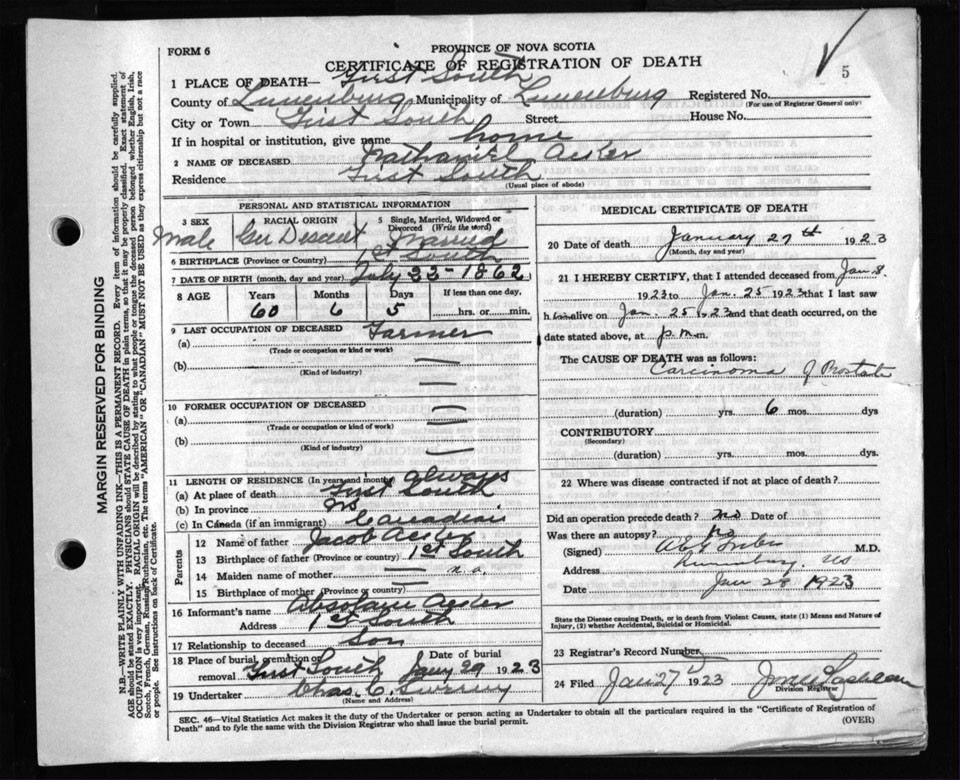 FORM 6
PROVINCE OF NOVA SCOTIA
CERTIFICATE OF REGISTRATION OF DEATH
5
1 PLACE OF DEATH— First South
County of Lunenburg Municipality of Lunenburg Registered No.
(For use of Registrar General only)
City or Town First South Street House No.
If in hospital or institution, give name home
2 NAME OF DECEASED Nathaniel Acker
Residence First South
(Usual place of abode)
PERSONAL AND STATISTICAL INFORMATION
3 SEX RACIAL ORIGIN 5 Single, Married, Widowed or Divorced (Write the word)
Male Ger Descent Married
6 BIRTHPLACE (Province or Country) 1st South
7 DATE OF BIRTH (month, day and year) July 22-1862
8 AGE Years Months Days If less than one day,
60 6 5 hrs. or min.
9 LAST OCCUPATION OF DECEASED
(a) Farmer
(Trade or occupation or kind or work)
(b)
(Kind of industry)
10 FORMER OCCUPATION OF DECEASED
(a)
(Trade or occupation or kind of work)
(b)
(Kind of industry)
11 LENGTH OF RESIDENCE (In years and months) always
(a) At place of death First South
(b) In province NS
(c) In Canada (if an immigrant) Canadian
Parents
12 Name of father Jacob Acker
13 Birthplace of father (Province or country) 1st South
14 Maiden name of mother n.a.
15 Birthplace of mother (Province or country)
16 Informant's name Acker
Address 1st South
17 Relationship to deceased Son
18 Place of burial, cremation or removal Date of burial
First South Jany 29 1923
19 Undertaker Chas. C.
(Name and Address)
MEDICAL CERTIFICATE OF DEATH
20 Date of death January 27th 1923
(Month, day and year)
21 I HEREBY CERTIFY, that I attended deceased from Jan 8.
1923 to Jan. 25 1923 that I last saw
h im alive on Jan. 25 1923 and that death occurred, on
date stated above, at p.m.
The CAUSE OF DEATH was as follows:
Carcinoma of Prostate
(duration) yrs. 6 mos. dys
CONTRIBUTORY
(Secondary)
(duration) yrs. mos. dys.
22 Where was disease contracted if not at place of death?
Did an operation precede death? no Date of
Was there an autopsy? no
(Signed) M.D.
Address Lunenburg, NS
Date Jan 1923
State the Disease causing Death, or in death from Violent Causes, state (1) Means and Nature of
Injury, (2) whether Accidental, Suicidal or Homicidal.
23 Registrar's Record Number 5
24 Filed Jan 27 1923
Division Registrar
SEC. 46—Vital Statistics Act makes it the duty of the Undertaker or person acting as Undertaker to obtain all the particulars required in the "Certificate of Registration of
Death" and to fyle the same with the Division Registrar who shall issue the burial permit.
(OVER)
MARGIN RESERVED FOR BINDING
N.B.—WRITE PLAINLY WITH UNFADING INK—THIS IS A PERMANENT RECORD. Every item of information should be carefully supplied.
AGE should be stated EXACTLY. PHYSICIANS should STATE CAUSE OF DEATH in plain terms, so that it may be properly classified. Exact statement of
OCCUPATION is very important. RACIAL ORIGIN will be described by stating to what people or tongue the deceased person belonged whether English, Irish,
Scotch, French, German, Russian, Ruthenian, etc. The terms "AMERICAN" OR "CANADIAN" MUST NOT BE USED as they express citizenship but not a race
or people. See instructions on back of Certificate.